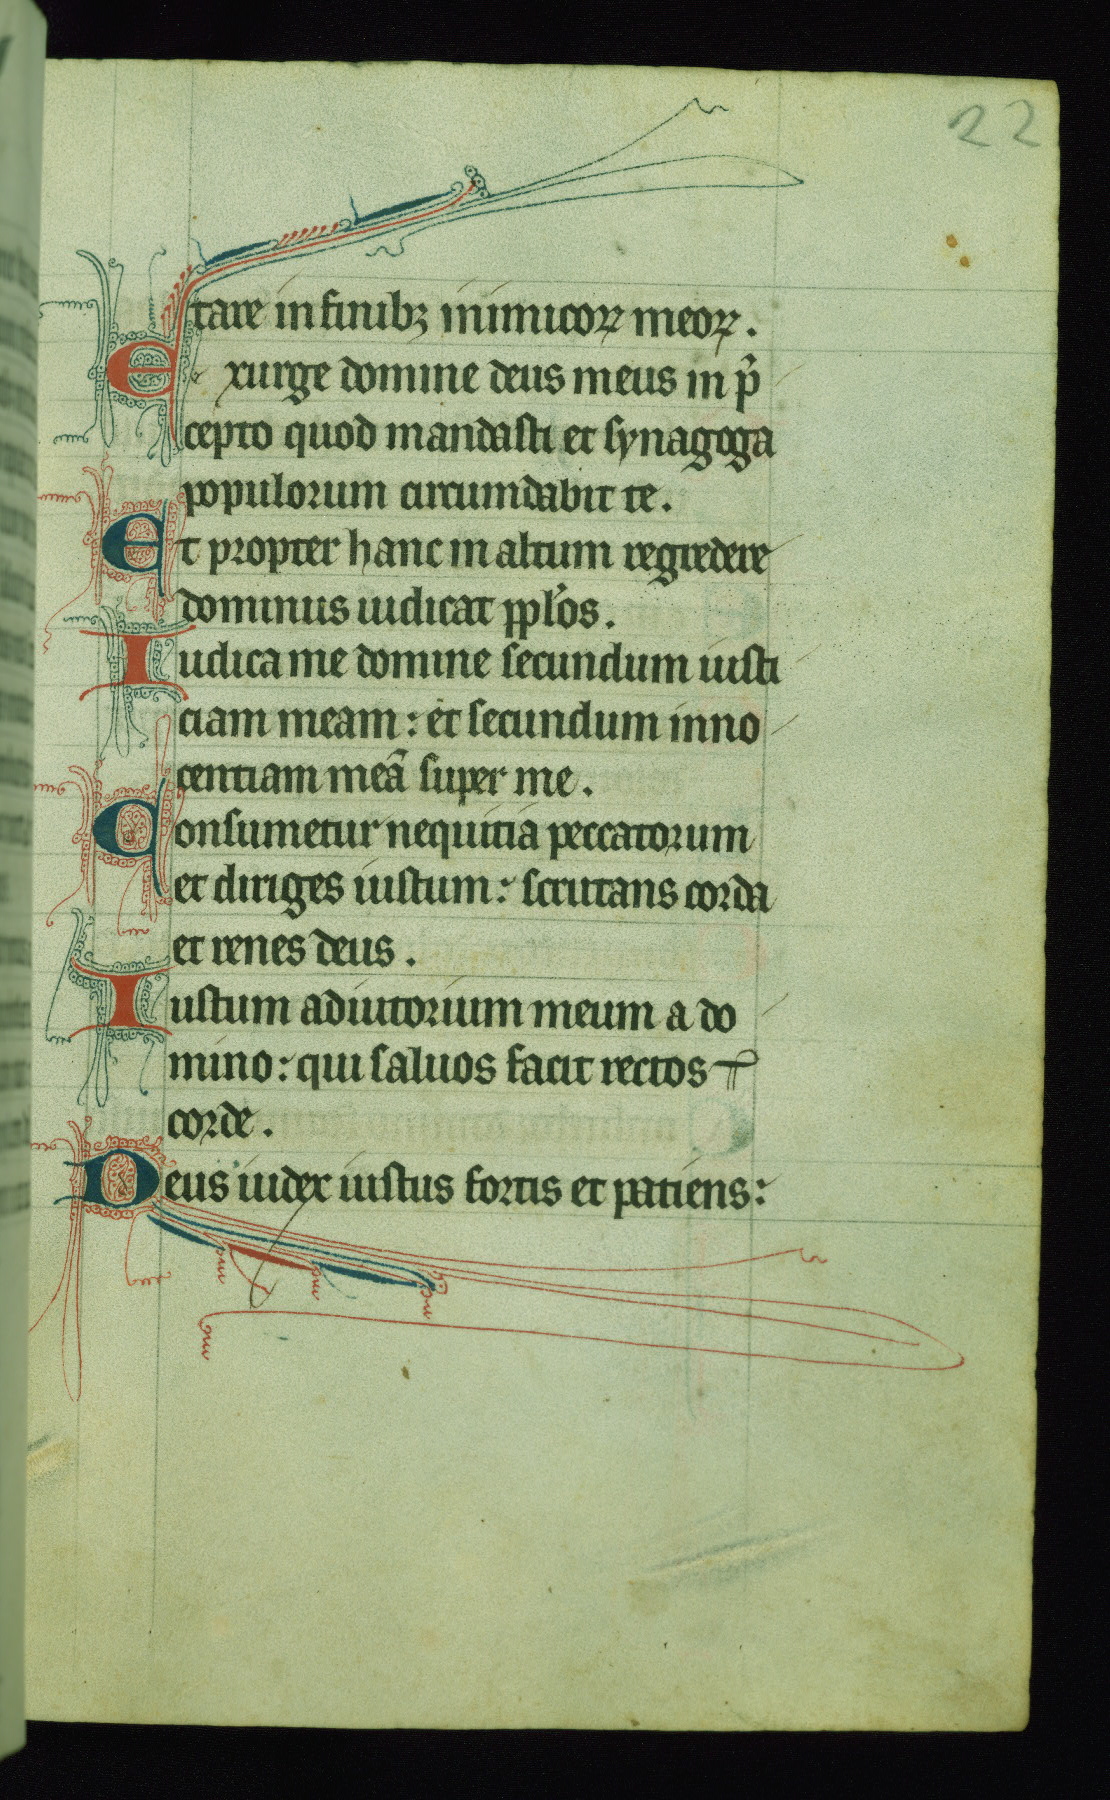 22
tare in finibꝫ inimicoꝝ meoꝝ.
Exurge domine deus meus in p̃
cepto quod mandasti et synagoga
populorum circumdabit te.
Et propter hanc in altum regredere
dominus iudicat ppl̃os.
Iudica me domine secundum iusti
ciam meam: et secundum inno
centiam meã super me.
Consumetur nequitia peccatorum
et diriges iustum: scrutans corda
et renes deus.
Iustum adiutorium meum a do
mino: qui saluos facit rectos
corde.
Deus iudex iustus fortis et patiens: